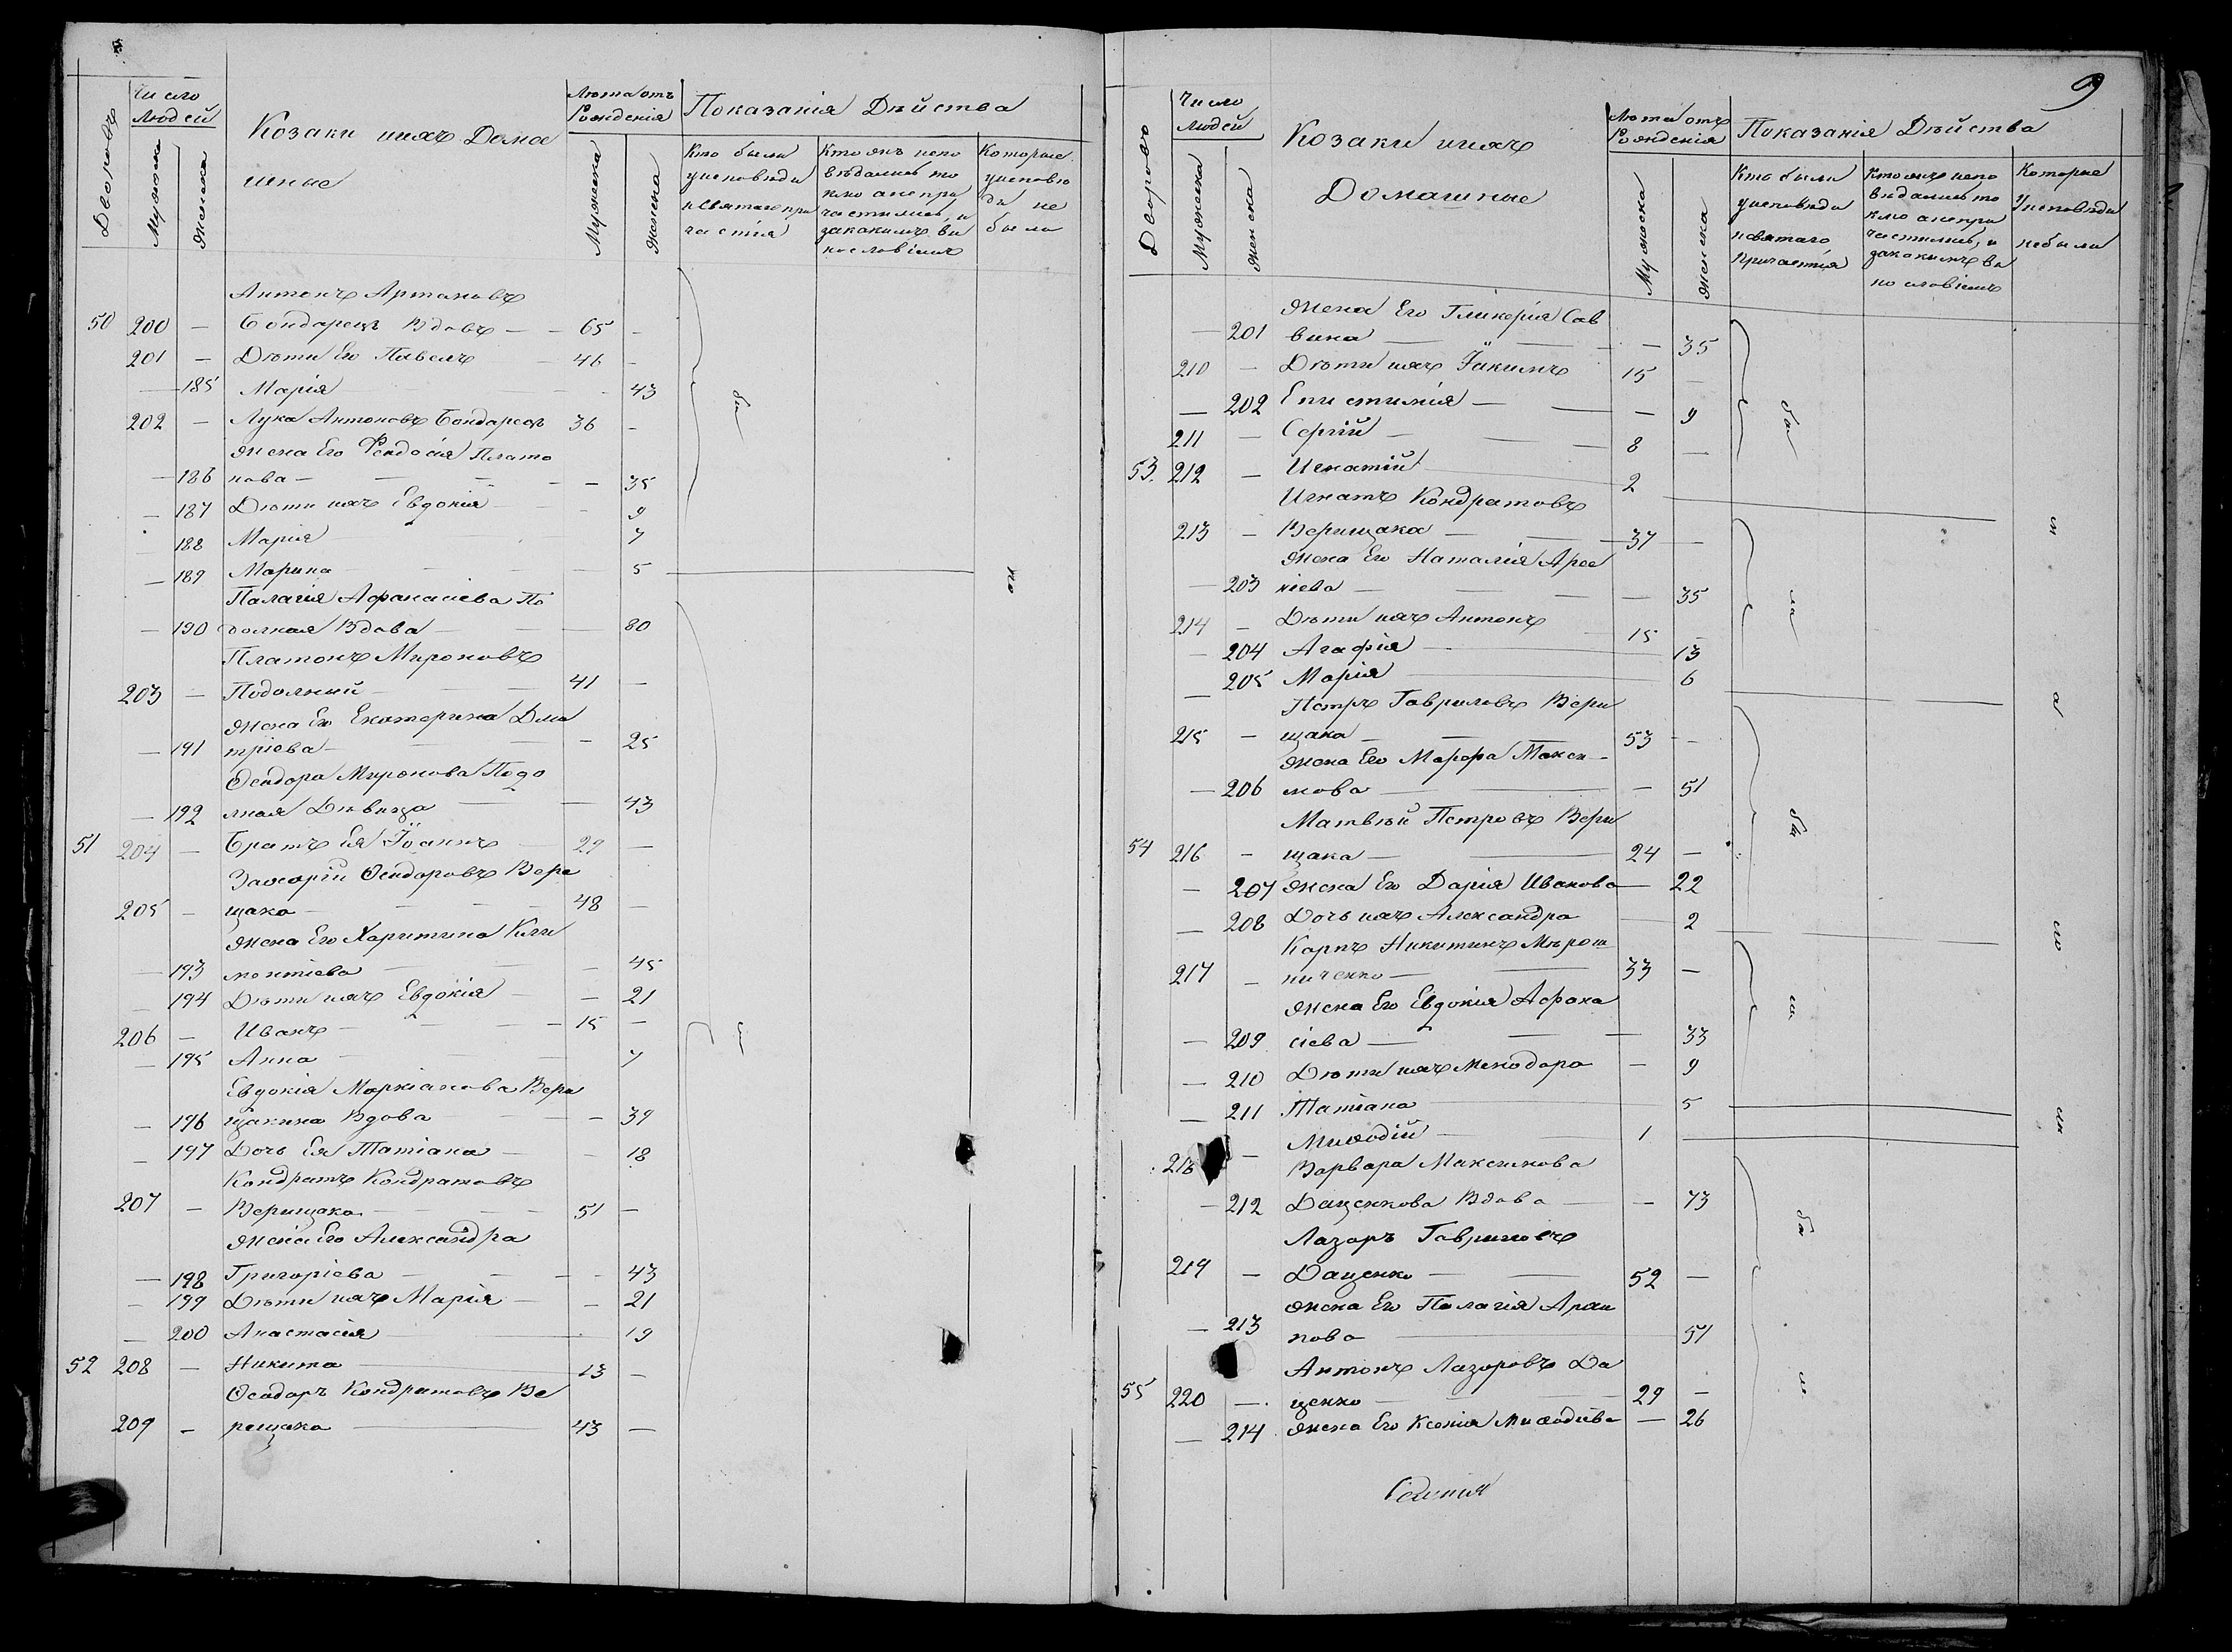 Дворовъ
Число
Людей
Мужеска
Женска
Козаки ииxъ Дома
шные
Лѣта отъ
Рожденія
Мужеска
Женска
Показанія Дѣйства
Кто были
уисповѣди
исвятаго при
частія
Кто жъ испо
вѣдались то
кмо анепри
частились, и
закакимъ ви
нословіемъ
Которые
уисповѣ
ди не
были
Антонъ Артамовъ
50 200 — Бондарецъ Вдовъ — 65 —
201 — Дѣти Его Павелъ — 46 —
— 185 Марія — 43
202 — Лука Антоновъ Бондарецъ 36 —
Жена Его Феодосія Плато
— 186 нова — — 35
— 187 Дѣти ихъ Евдокія — 9
188 Марія 7
— 189 Марина 5
Палагія Афанасіева По
— 190 долная Вдова — 80
Платонъ Мироновъ
203 — Подолный — 41 —
Жена Его Екатерина Дми
— 191 тріева — — 25
Ѳеодора Миронова Подо
— 192 лная Дѣвица — 43
51 204 — Братъ Ея Іоаннъ 29 —
Ѳеодоровъ Вере
205 — щака — 48 —
Жена Его Харитина Кли
— 193 ментіева — 45
— 194 Дѣти ихъ Евдокія — 21
206 — Иванъ — 15 —
— 195 Анна 7
Евдокія Маркіанова Вере
— 196 щакина Вдова — 39
— 197 Дочь Ея Татіана — 18
Кондратъ Кондратовъ
207 — Верещака — 51 —
Жена Его Александра
— 198 Григоріева — 43
— 199 Дѣти ихъ Марія — 21
— 200 Анастасія 19
52 208 — Никита 13 —
Ѳеодоръ Кондратовъ Ве
209 — рещака 43 —
бы
по
9
Дворовъ
Число
Людей
Мужеска
Женска
Козаки ииxъ
Домашные
Лѣта отъ
Рожденія
Мужеска
Женска
Показанія Дѣйства
Кто были
уисповѣди
исвятаго
Причастія
Кто жъ испо
вѣдались то
кмо анепри
частились, и
закакимъ ви
нословіемъ
Которые
Уисповѣди
небыли
Жена Его Гликерія Сав
— 201 вина — — 35
210 — Дѣти ихъ Іакимъ 15 —
— 202 Епистимія — — 9
211 — Сергій — 8 —
53. 212 — Игнатій 2
Игнатъ Кондратовъ
213 — Верещака — 37 —
Жена Его Наталія Арсе
— 203 ніева — — 35
214 — Дѣти ихъ Антонъ 15 —
— 204 Агафія — 13
— 205 Марія 6
Петръ Гавриловъ Вери
215 — щака — 53 —
Жена Его Марфа Макси
— 206 мова — — 51
Матвѣй Петровъ Вери
54 216 — щака — 24 —
— 207 Жена Его Дарія Иванова — 22
— 208 Дочь ихъ Александра — 2
Карпъ Никитинъ Мѣрош
217 — ниченко — 33 —
Жена Его Евдокія Афана
— 209 сіева — — 33
— 210 Дѣти ихъ Минодора — 9
— 211 Татіана 5
Меѳодій — 1
218 — Варвара Максимова
— 212 Даценкова Вдова — 73
Лазоръ Гавриловъ
219 — Даценко — 52 —
Жена Его Палагія Архи
— 213 пова 51
Антонъ Лазоровъ Да
55 220 — ценко — 29 —
— 214 Жена Его Ксенія Меѳодіева — 26
бы
ла
бы
ла
бы